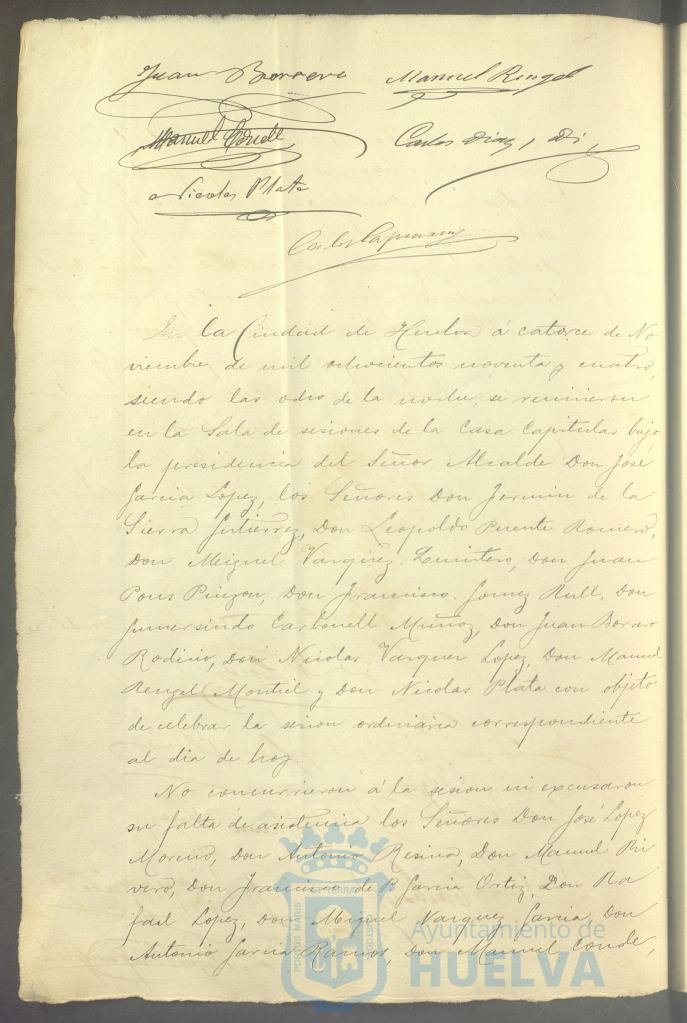 Juan Borrero Manuel Rengel
Manuel Conde Carlos Diaz
Nicolas Plata
Carlos
En la Ciudad de Huelva á catorce de No
viembre de mil ochocientos noventa y cuatro,
siendo las ocho de la noche, se reunieron
en la Sala de sesiones de la Casa Capitular bajo
la presidencia del Señor Alcalde Don José
Garcia Lopez, los Señores Don Fermin de la
Sierra Gutierrez, Don Leopoldo Puente Romero,
Don Miguel Vazquez Quintero, Don Juan
Pons Pinzon, Don Francisco Gomez Rull, Don
Gumersindo Carbonell Muñoz, Don Juan Borrero
Rodino, Don Nicolas Vazquez Lopez, Don Manuel
Rengel Montiel y Don Nicolas Plata con objeto
de celebrar la sesion ordinaria correspondiente
al dia de hoy.
No concurrieron á la sesion ni excusaron
su falta de asistencia los Señores Don José Lopez
Moreno, Don Antonio Resino, Don Manuel Ri
vero, Don Francisco de P. Garcia Ortiz, Don Ra
fael Lopez, Don Miguel Vazquez Garcia, Don
Antonio Garcia Ramos, Don Manuel Conde,
PORTUS MARIS ET TERRAE CUSTODIA
Ayuntamiento de
HUELVA